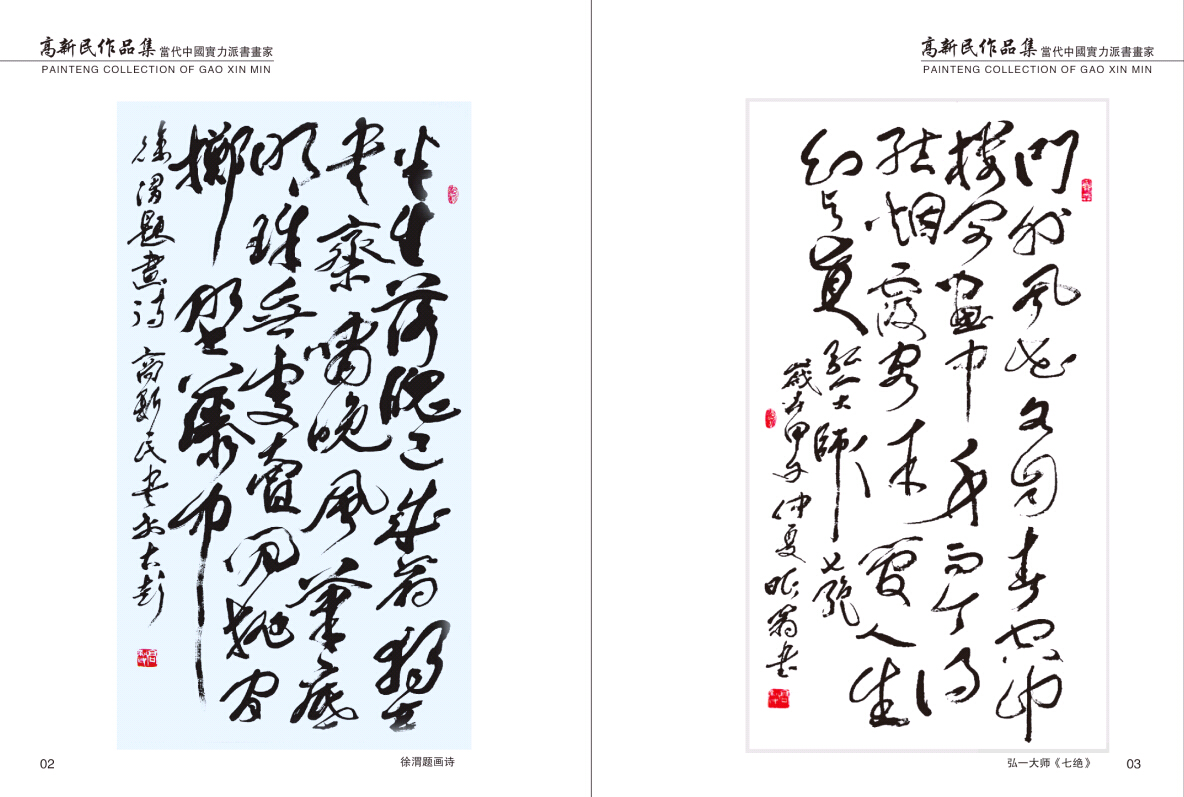 高新民作品集 當代中國實力派書畫家
PAINTENG COLLECTION OF GAO XIN MIN
半生落魄已成翁獨立
書齋嘯晚風筆底
明珠無處賣閑抛閑
擲野藤中
徐渭題畫詩 高新民書於古彭
02
徐渭题画诗
高新民作品集 當代中國實力派書畫家
PAINTENG COLLECTION OF GAO XIN MIN
門外風花各自春空中
樓閣畫中身而今得
結烟霞客休問人生
幻與真
弘一大師七絕
歲在甲午仲夏 翁書
弘一大师《七绝》
03